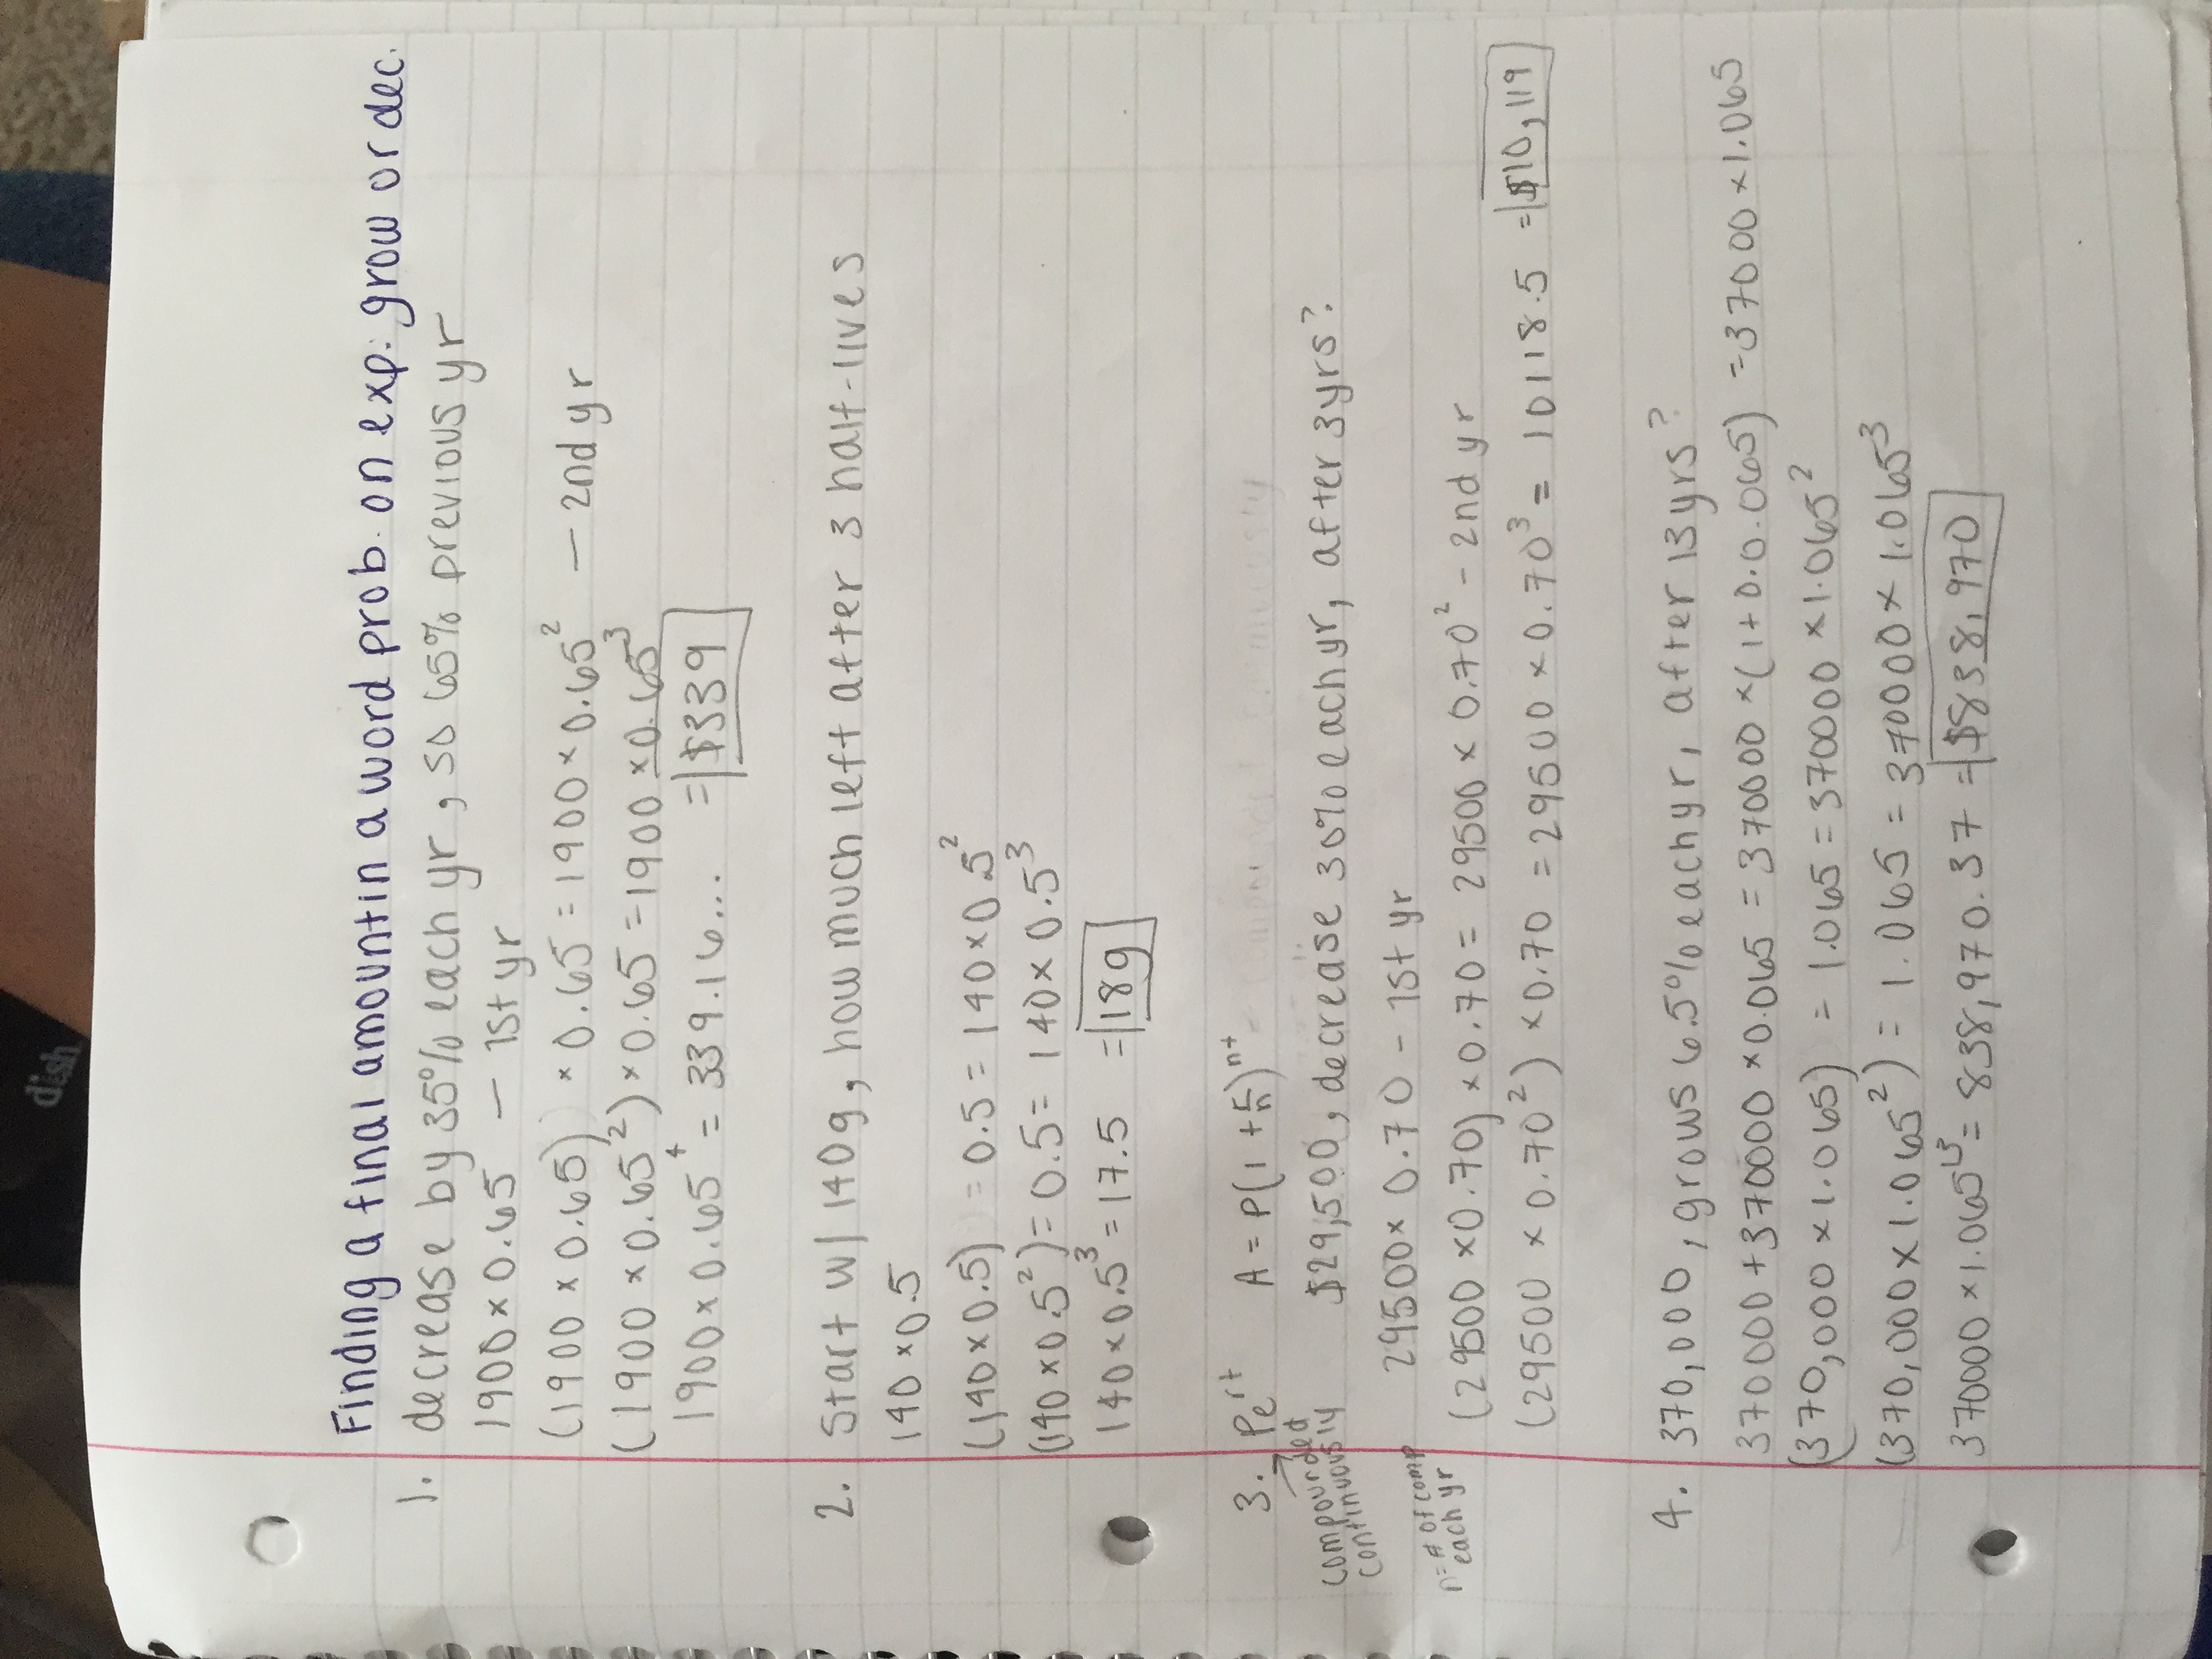 Finding a final amount in a word prob. on exp. grow or dec.
1. decrease by 35% each yr, so 65% previous yr
1900 x 0.65 — 1st yr
(1900 x 0.65) x 0.65 = 1900 x 0.65² — 2nd yr
(1900 x 0.65²) x 0.65 = 1900 x 0.65³
1900 x 0.65⁴ = 339.16... = $339
2. Start w/ 140g, how much left after 3 half-lives
140 x 0.5
(140 x 0.5) = 0.5 = 140 x 0.5²
(140 x 0.5²) = 0.5 = 140 x 0.5³
140 x 0.5³ = 17.5 = 18g
3. Pe^rt A = P(1 + r/n)^nt
compounded continuously
$29,500, decrease 30% each yr, after 3yrs?
n = # of comp each yr
29500 x 0.70 - 1st yr
(29500 x 0.70) x 0.70 = 29500 x 0.70² - 2nd yr
(29500 x 0.70²) x 0.70 = 29500 x 0.70³ = 10118.5 = $10,119
4. 370,000, grows 6.5% each yr, after 13yrs?
370000 + 370000 x 0.065 = 370000 x (1+0.0.065) = 37000 x 1.065
(370,000 x 1.065) = 1.065 = 370000 x 1.065²
(370,000 x 1.065²) = 1.065 = 370000 x 1.065³
370000 x 1.065¹³ = 838,970.37 = $838,970
dish